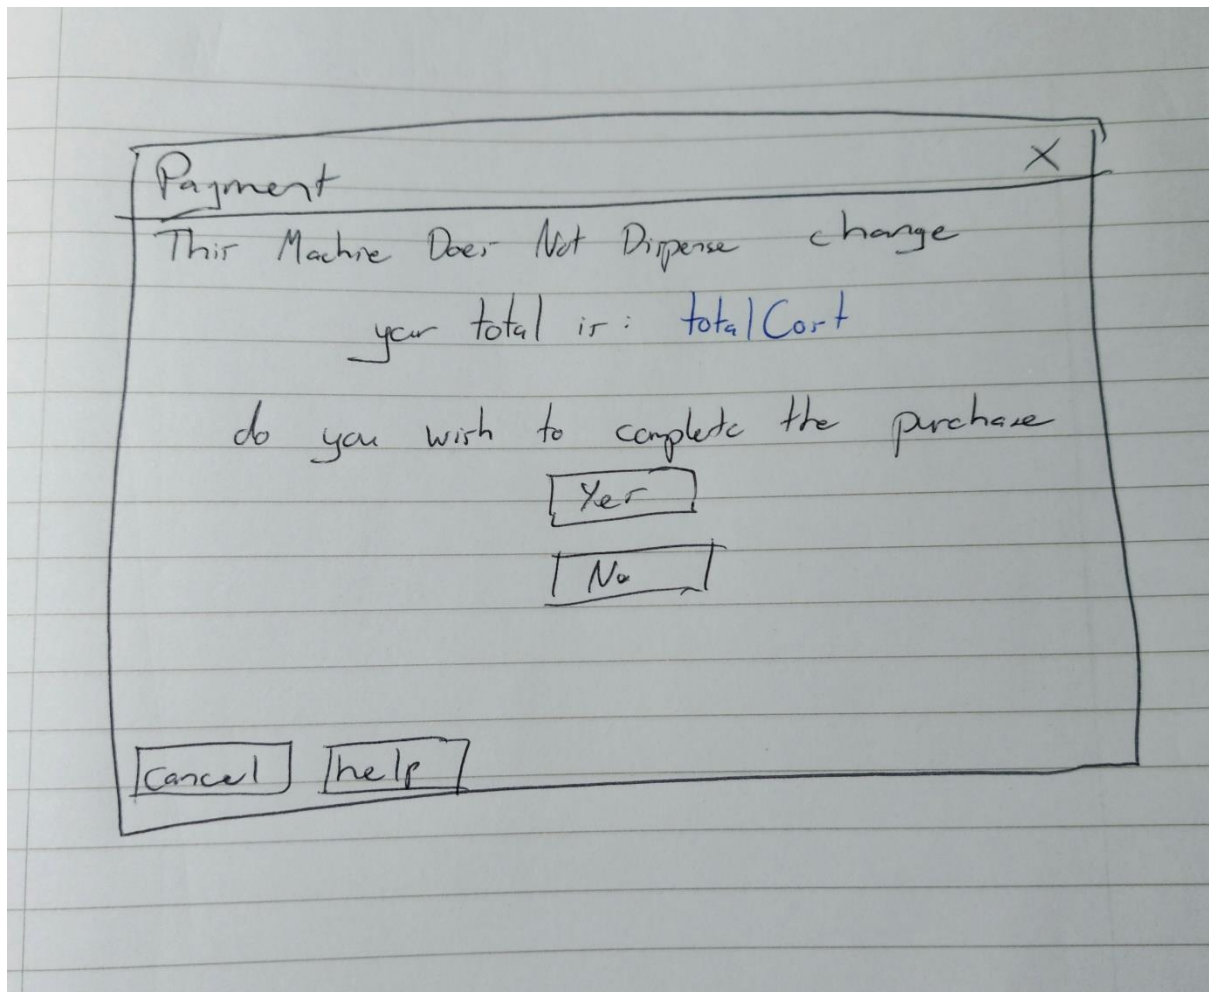 Payment X
This Machine Does Not Dispense change
your total is: totalCost
do you wish to complete the purchase
Yes
No
cancel help